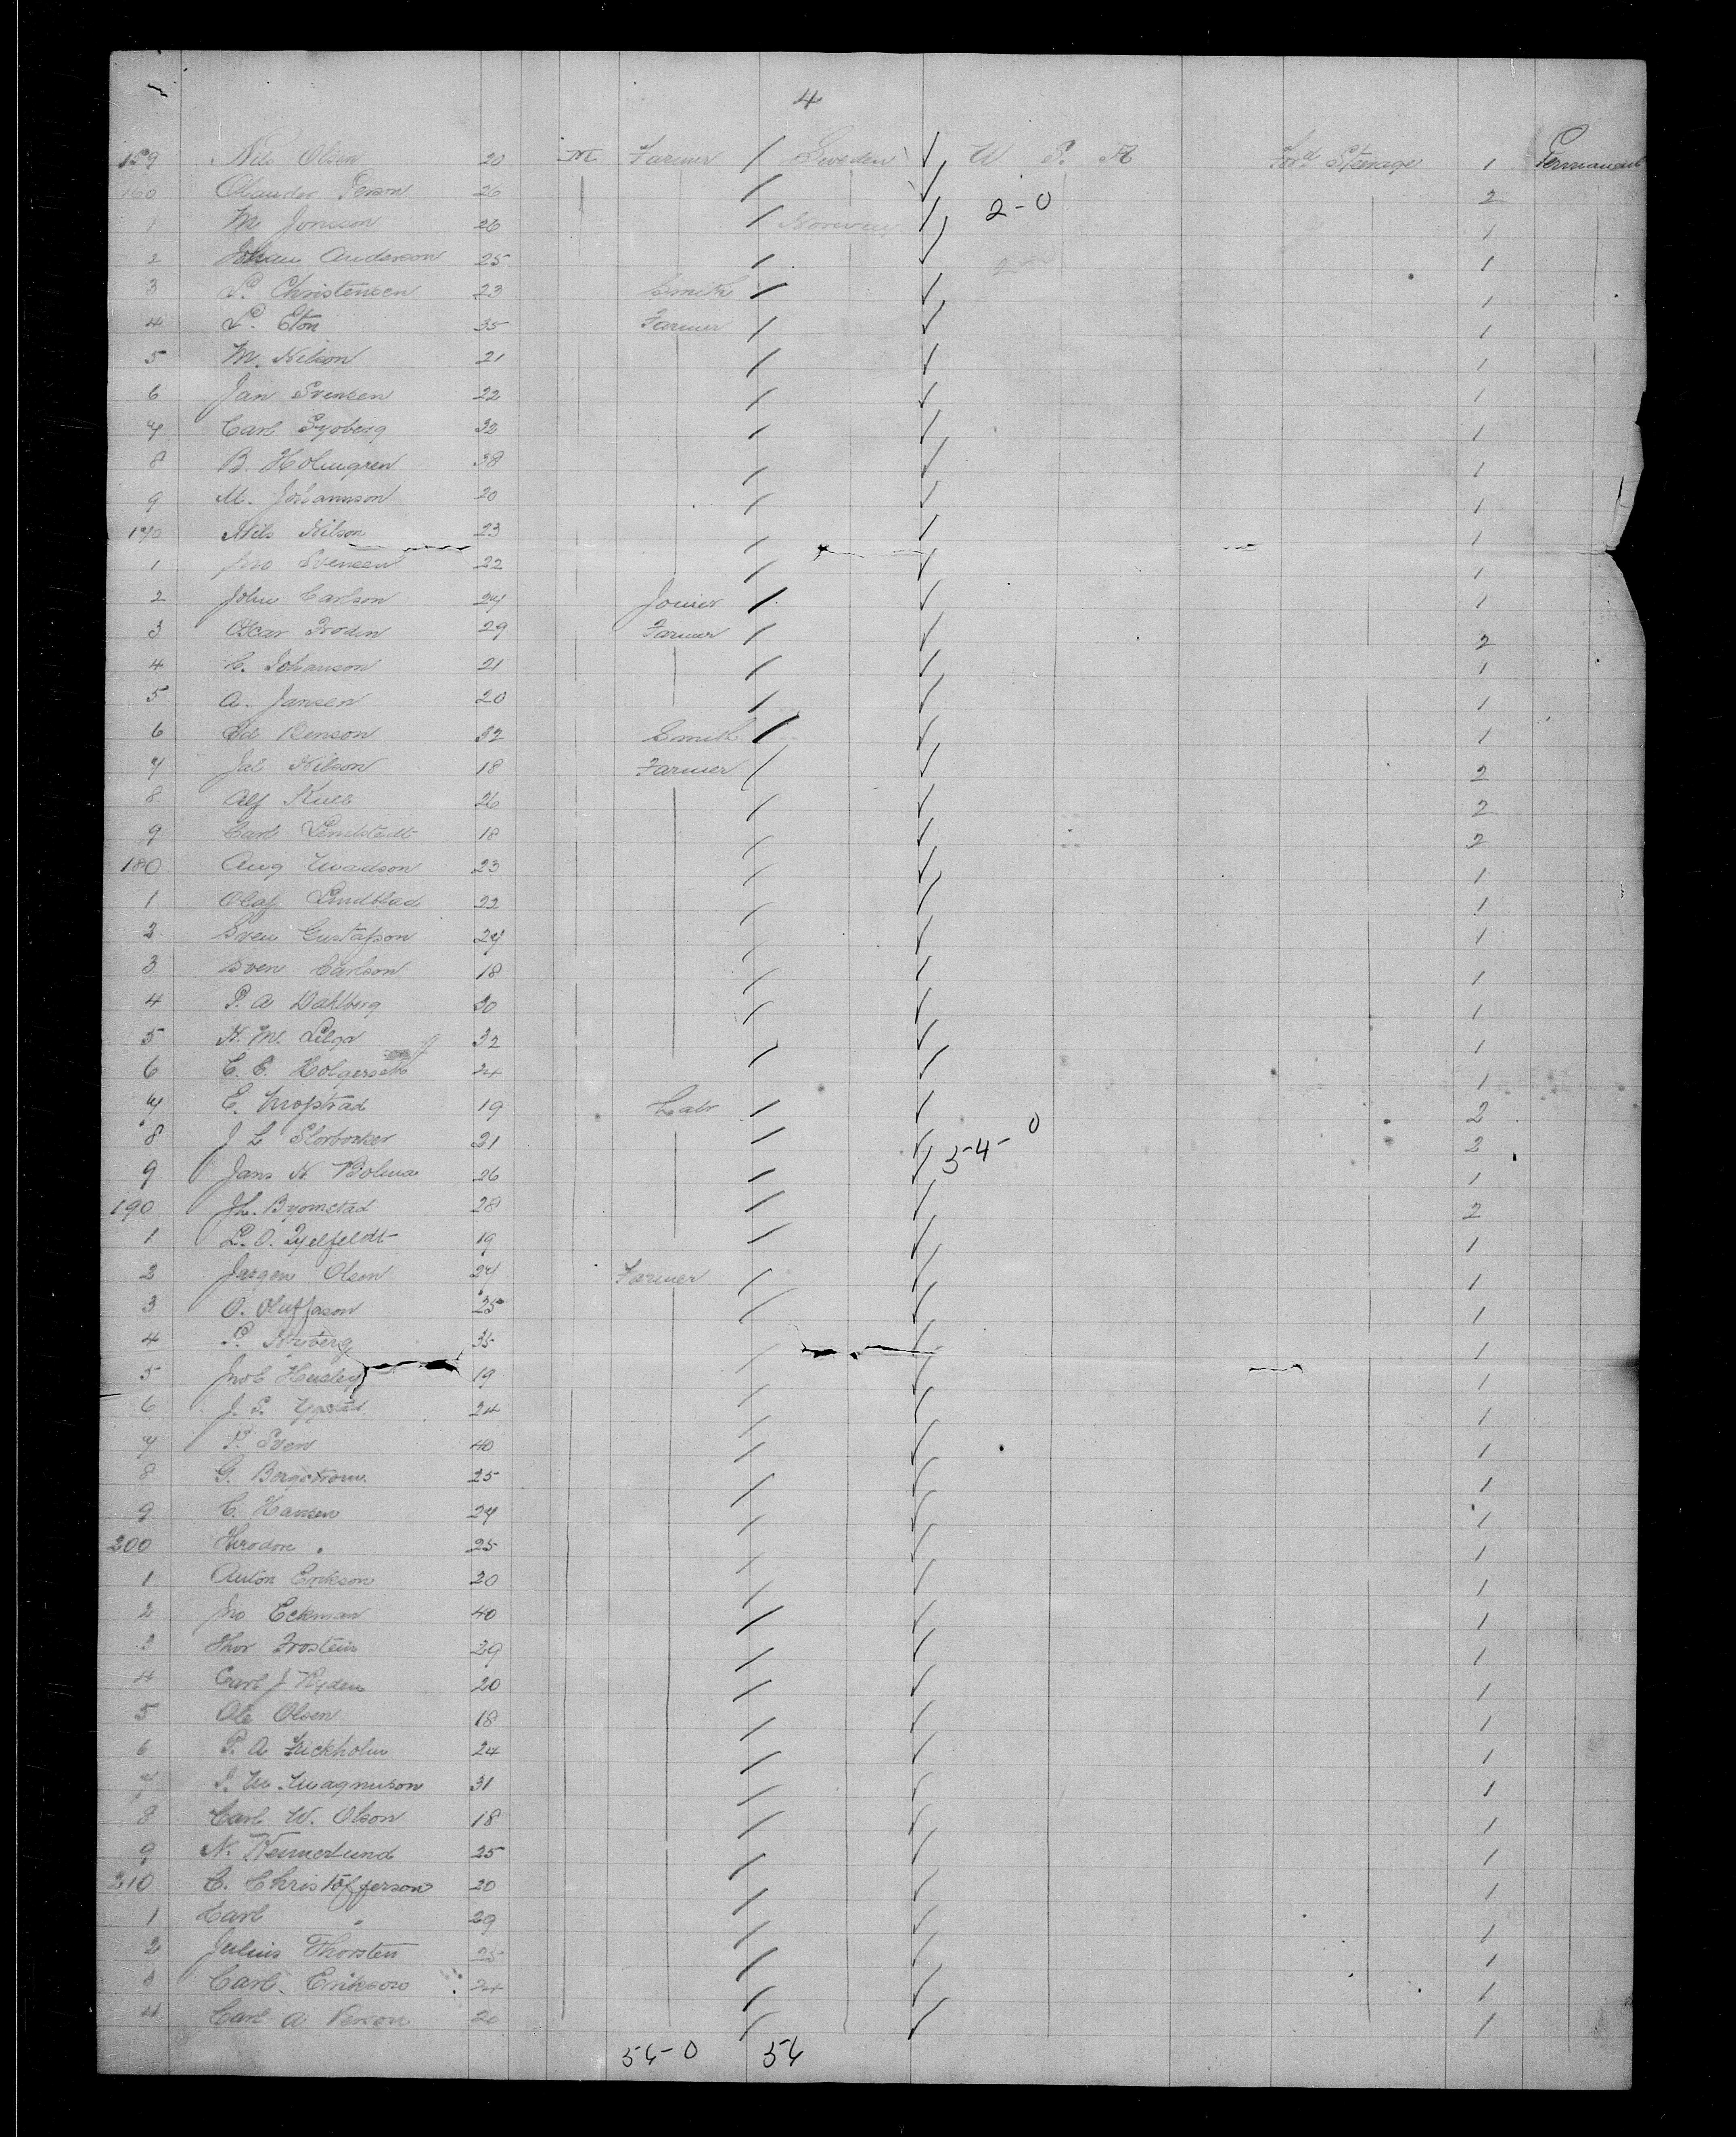 4
159 Nils Olsen 20 M Farmer / Sweden ✓ U S. A Ford Steerage 1 Permanent
160 Olander Person 26 / ✓ 2
1 M Jonsson 26 / Norway ✓ 2-0 1
2 Johan Anderson 25 / ✓ 1
3 P. Christensen 23 Smith / ✓ 1
4 P. Eton 35 Farmer / ✓ 1
5 M. Nilson 21 / ✓ 1
6 Jan Svensen 22 / ✓ 1
7 Carl 32 / ✓ 1
8 B. Holmgren 38 / ✓ 1
9 M. Johannson 20 / ✓ 1
170 Nils Nilson 23 / ✓ 1
1 Jno Svensen 22 / ✓ 1
2 John Carlson 27 Joiner / ✓ 1
3 Oscar Frodin 29 Farmer / ✓ 2
4 C. Johanson 21 / ✓ 1
5 A. Jansen 20 / ✓ 1
6 Ed Benson 32 Smith / ✓ 1
7 Nilson 18 Farmer / ✓ 2
8 Alf 26 / ✓ 2
9 Carl Lindstedt 18 / ✓ 2
180 Aug 23 / ✓ 1
1 Olaf Lindblad 22 / ✓ 1
2 Sven Gustafson 27 / ✓ 1
3 Sven Carlson 18 / ✓ 1
4 P. A Dahlberg 30 / ✓ 1
5 N. M. Lilga 32 / ✓ 1
6 C. E. 24 / ✓ 1
7 E. 19 Labr / ✓ 2
8 J L 21 / ✓ 54-0 2
9 Jans N Bolma 26 / ✓ 1
190 Byornstad 28 / ✓ 2
1 L. O. 19 / ✓ 1
2 Jorgen Olson 27 Farmer / ✓ 1
3 O. Oluffason 25 / ✓ 1
4 P. Nyberg 35 / ✓ 1
5 19 / ✓ 1
6 J. P. 24 / ✓ 1
7 P. Sven 40 / ✓ 1
8 G. Bergstrom. 25 / ✓ 1
9 C. Hansen 27 / ✓ 1
200 Theodore " 25 / ✓ 1
1 Anton Erikson 20 / ✓ 1
2 Jno Eckman 40 / ✓ 1
3 Thor Frostein 29 / ✓ 1
4 Carl J Ryden 20 / ✓ 1
5 Ole Olsen 18 / ✓ 1
6 P. A 24 / ✓ 1
7 Magnuson 31 / ✓ 1
8 Carl W. Olson 18 / ✓ 1
9 N. Wennerlund 25 / ✓ 1
210 C. Christofferson 20 / ✓ 1
1 Carl " 29 / ✓ 1
2 Julius Thorsten 25 / ✓ 1
3 Carl Erikson 24 / ✓ 1
4 Carl A Person 20 / ✓ 1
54-0 54